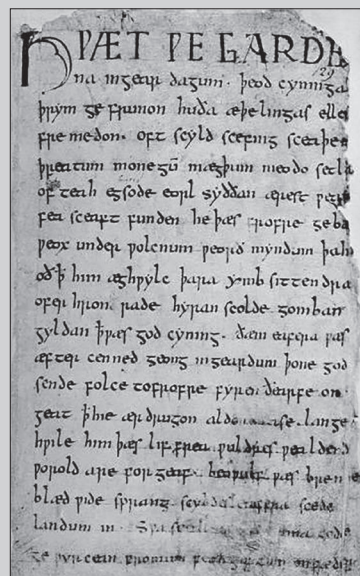 HǷÆT ǷE GARDE
na ingear dagum. þeod cyninga
þrym ge frunon huða æþelingas elle
fre medon. oft scyld scefing sceaþe
þreatum monegū mægþum meodo setla
of teah egsode eorl syððan ærest ƿea
sceaft funden he þæs frofre geba
ƿeox under ƿolcnum ƿeorð myndum þah
oð ꝥ him æghƿylc þara ymb sittendra
ofer hron rade hyran scolde gomban
gyldan þ ƿæs god cyning. ðæm eafera ƿæs
æfter cenned geong ingeardum þone god
sende folce tofrofre fyren ðearfe on
geat ꝥ hie ær drugon aldor ase. lange
hƿile him þæs lif frea ƿuldres ƿealdend
ƿorold are for geaf. beoƿulf ƿæs breme
blæd ƿide sprang scyldes eafera scede
landum in. gode
ge ƿyrcean fromum